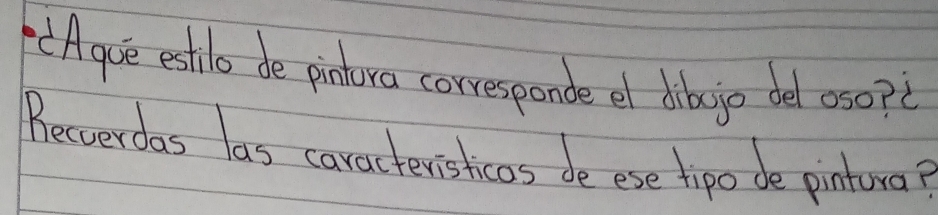 •¿A qué estilo de pintura corresponde el dibujo del oso?¿
Recuerdas las características de ese tipo de pintura?